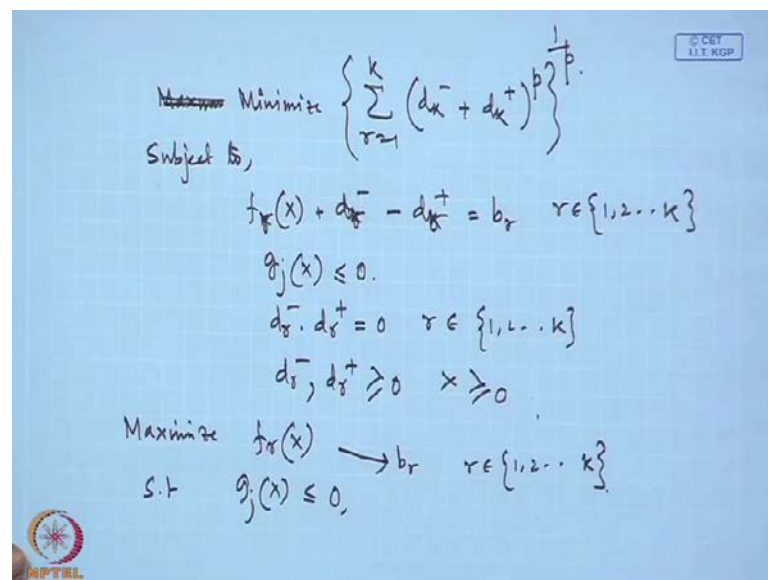 © CET
I.I.T. KGP
Minimize { Σ_{r=1}^{K} (d_k^- + d_k^+)^p }^{1/p}.
Subject to,
f_r(x) + d_r^- - d_r^+ = b_r r ∈ {1,2..K}
g_j(x) ≤ 0.
d_r^- . d_r^+ = 0 r ∈ {1,2...K}
d_r^-, d_r^+ ≥ 0 x ≥ 0.
Maximize f_r(x) → b_r r ∈ {1,2.. K}.
S.t g_j(x) ≤ 0,
NPTEL